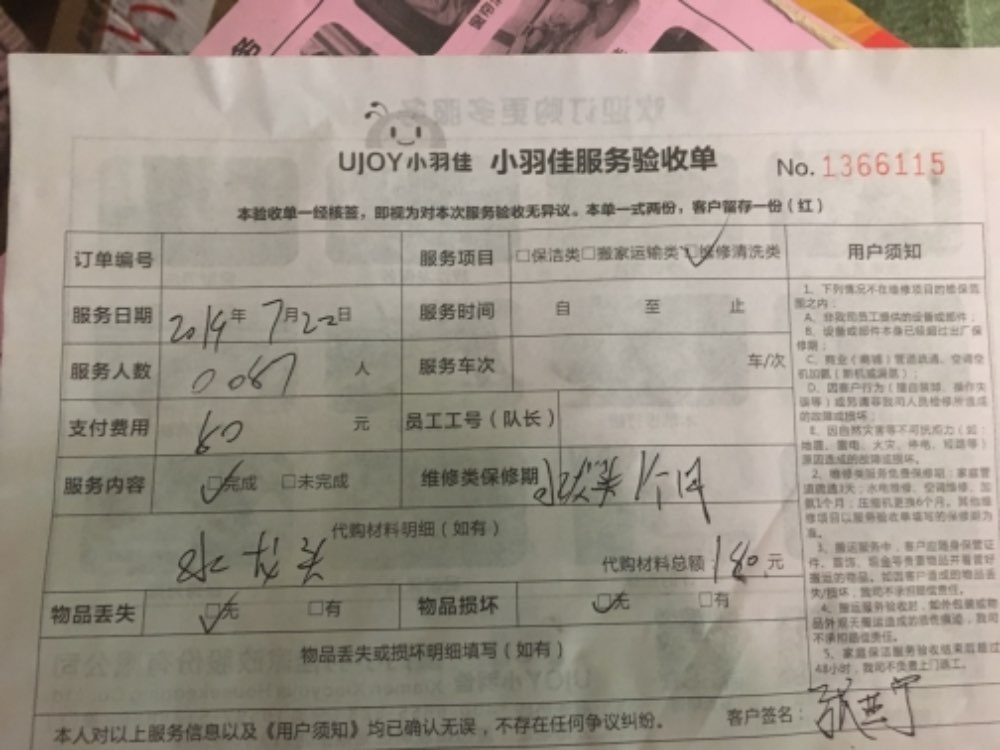 UJOY小羽佳 小羽佳服务验收单 No. 1366115
本验收单一经核签，即视为对本次服务验收无异议。本单一式两份，客户留存一份（红）
订单编号 服务项目 □保洁类□搬家运输类□维修清洗类 用户须知
服务日期 2019年 7月22日 服务时间 自 至 止
服务人数 0087 人 服务车次 车/次
支付费用 60 元 员工工号（队长）
服务内容 □完成 □未完成 维修类保修期 1个月
代购材料明细（如有）
代购材料总额：180元
物品丢失 □无 □有 物品损坏 □无 □有
物品丢失或损坏明细填写（如有）
本人对以上服务信息以及《用户须知》均已确认无误，不存在任何争议纠纷。 客户签名：张燕宁
1、下列情况不在维修项目的维保范
围之内：
A、非我司员工提供的设备或部件；
B、设备或部件本身已经超过出厂保
修期；
C、商业（商铺）管道疏通、空调空
机加氨（断机或漏氨）；
D、因客户行为（擅自装卸、操作失
误等）或另请非我司人员检修所造成
的故障或损坏；
E、因自然灾害等不可抗力（如：
地震、雷电、火灾、停电、短路等）
原因造成的故障或损坏。
2、维修类服务免费保修期：家庭管
道疏通3天；水电维修、空调维修、加
氨1个月；压缩机更换6个月。其他维
修项目以服务验收单填写的保修期为
准。
3、搬运服务中，客户应随身保管证
件、首饰、现金等贵重物品并看管好
搬运的物品。如因客户造成的物品丢
失/损坏，我司不承担赔偿责任。
4、搬运服务验收时，如外包装或物
品外观无搬运造成的损伤痕迹，我司
不承担赔偿责任。
5、家庭保洁服务验收结束后超过
48小时，我司不负责上门返工。